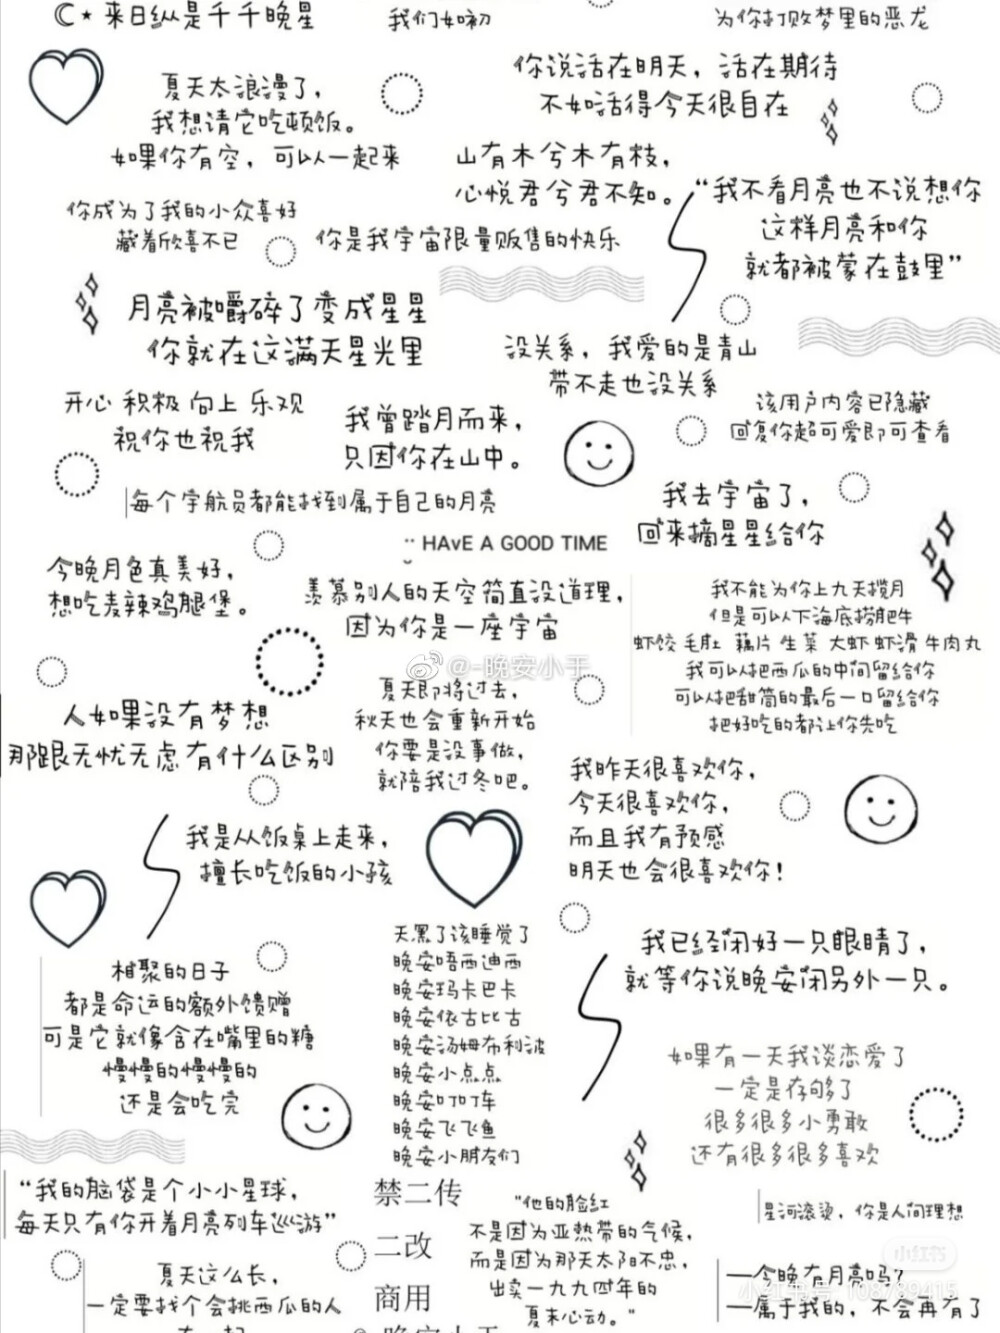 来日纵是千千晚星
我们如初
为你打败梦里的恶龙
夏天太浪漫了，
我想请它吃顿饭。
如果你有空，可以一起来
你说活在明天，活在期待
不如活得今天很自在
山有木兮木有枝，
心悦君兮君不知。
“我不看月亮也不说想你
这样月亮和你
就都被蒙在鼓里”
你成为了我的小众喜好
藏着欣喜不已
你是我宇宙限量贩售的快乐
月亮被嚼碎了变成星星
你就在这满天星光里
没关系，我爱的是青山
带不走也没关系
开心 积极 向上 乐观
祝你也祝我
我曾踏月而来，
只因你在山中。
该用户内容已隐藏
回复你超可爱即可查看
每个宇航员都能找到属于自己的月亮
我去宇宙了，
回来摘星星给你
HAvE A GOOD TIME
今晚月色真美好，
想吃麦辣鸡腿堡。
羡慕别人的天空简直没道理，
因为你是一座宇宙
我不能为你上九天揽月
但是可以下海底捞肥牛
虾饺 毛肚 藕片 生菜 大虾 虾滑 牛肉丸
我可以把西瓜的中间留给你
可以把甜筒的最后一口留给你
把好吃的都让你先吃
@-晚安小于
夏天即将过去，
秋天也会重新开始
你要是没事做，
就陪我过冬吧。
人如果没有梦想
那跟无忧无虑有什么区别
我昨天很喜欢你，
今天很喜欢你，
而且我有预感
明天也会很喜欢你！
我是从饭桌上走来，
擅长吃饭的小孩
天黑了该睡觉了
晚安唔西迪西
晚安玛卡巴卡
晚安依古比古
晚安汤姆布利波
晚安小点点
晚安叮叮车
晚安飞飞鱼
晚安小朋友们
我已经闭好一只眼睛了，
就等你说晚安闭另外一只。
相聚的日子
都是命运的额外馈赠
可是它就像含在嘴里的糖
慢慢的慢慢的
还是会吃完
如果有一天我谈恋爱了
一定是存够了
很多很多小勇敢
还有很多很多喜欢
“我的脑袋是个小小星球，
每天只有你开着月亮列车巡游”
禁二传
二改
商用
“他的脸红
不是因为亚热带的气候，
而是因为那天太阳不忠，
出卖一九九四年的
夏末心动。”
星河滚烫，你是人间理想
夏天这么长，
一定要找个会挑西瓜的人
小红书
—今晚有月亮吗？
小红书号：108789415
—属于我的，不会再有了